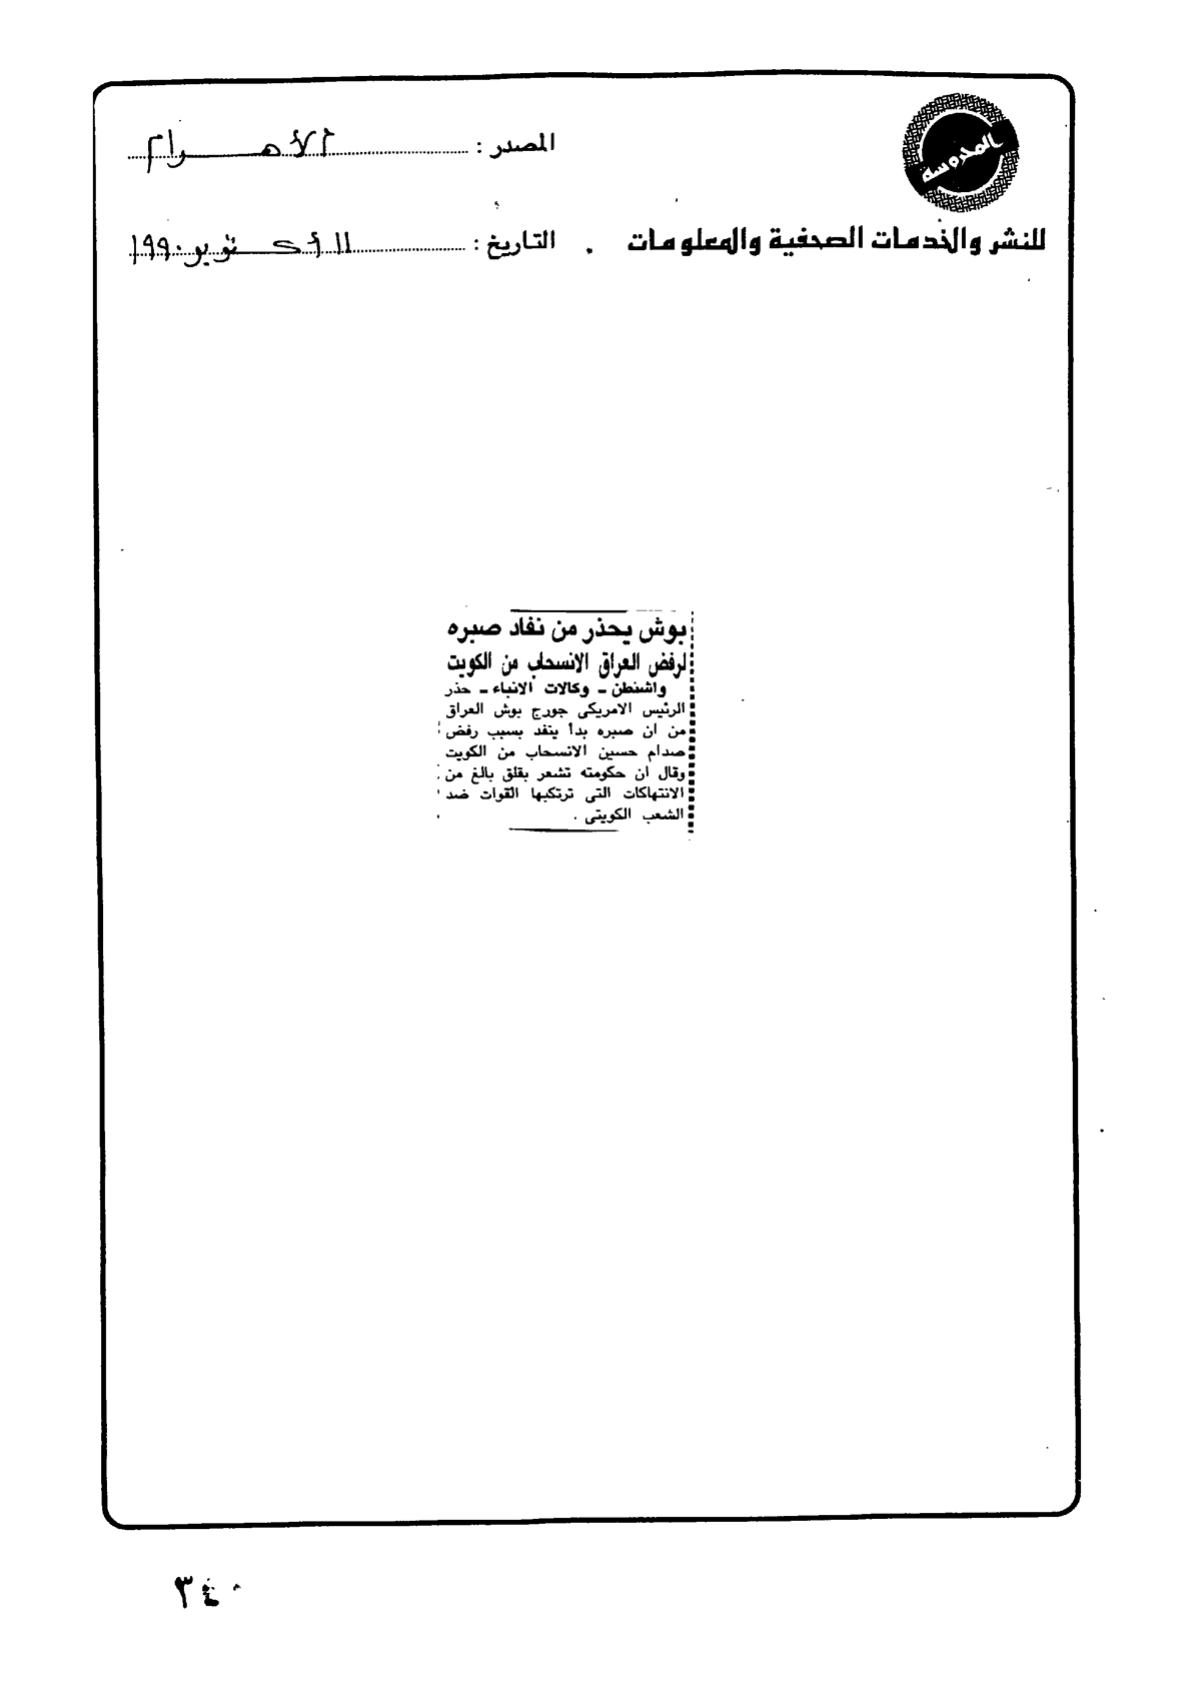 المحروسة
المصدر : الأهرام
للنشر والخدمات الصحفية والمعلومات
التاريخ : ١١ أكتوبر ١٩٩٠
بوش يحذر من نفاد صبره
لرفض العراق الانسحاب من الكويت
واشنطن ـ وكالات الانباء ـ حذر
الرئيس الامريكى جورج بوش العراق
من ان صبره بدأ ينفد بسبب رفض
صدام حسين الانسحاب من الكويت
وقال ان حكومته تشعر بقلق بالغ من
الانتهاكات التى ترتكبها القوات ضد
الشعب الكويتى .
٣٤٠